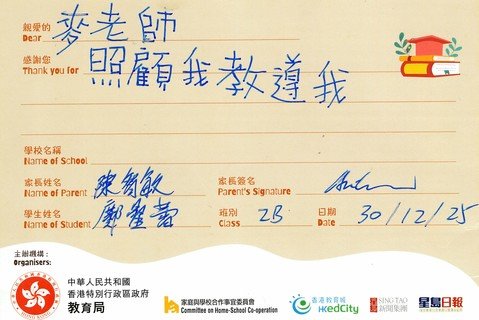 親愛的
Dear 麥老師
感謝您
Thank you for 照顧我教導我
學校名稱
Name of School
家長姓名 家長簽名
Name of Parent 陳智敏 Parent's Signature
學生姓名 班別 日期
Name of Student 鄭 Class 2B Date 30/12/25
主辦機構：
Organisers:
中華人民共和國
香港特別行政區政府
教育局
家庭與學校合作事宜委員會
Committee on Home-School Co-operation
香港教育城
HKedCity
星島 SING TAO
新聞集團
星島日報